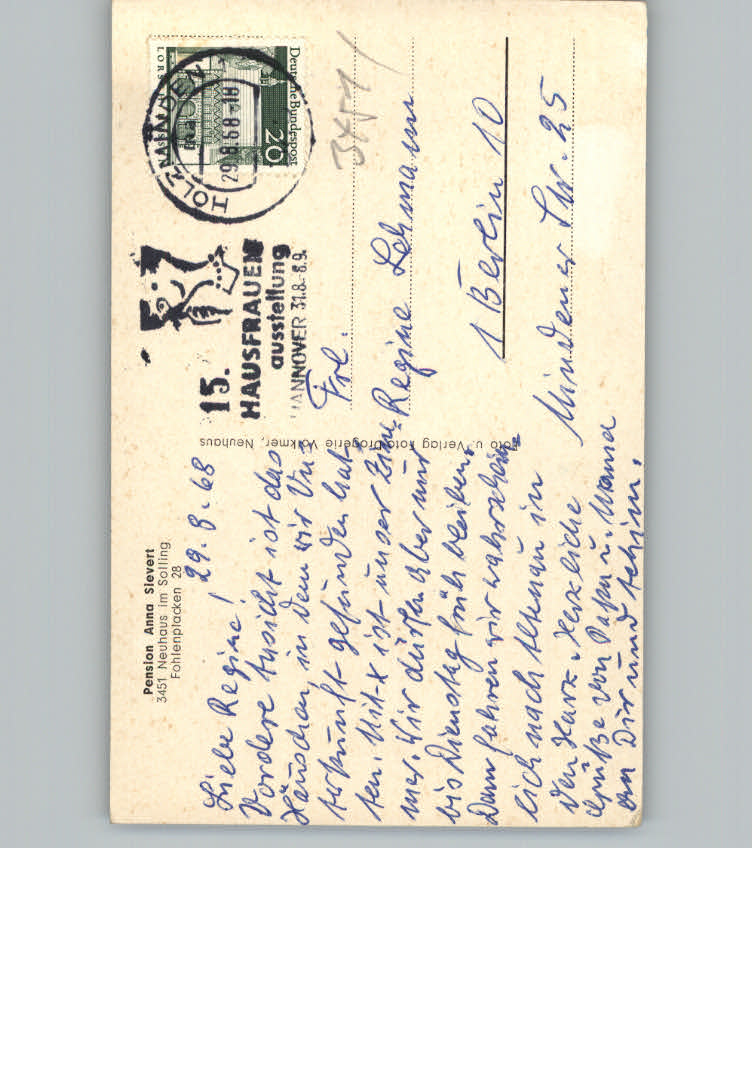 Pension Anna Sievert
3451 Neuhaus im Solling
Fohlenplacken 28
29.8.68
Liebe Regine!
Vordere Ansicht ist das
Häuschen, in dem wir Un-
terkunft gefunden hat-
ten. Mit x ist unser Zim-
mer. Wir dürfen aber nur
bis Dienstag früh bleiben.
Dann fahren wir wahrschein=
lich nach Altenau in
den Harz. Herzliche
Grüße von Papa u. Mama
an Dir und
Foto u. Verlag Foto-Drogerie Volkmer, Neuhaus
15.
HAUSFRAUEN
ausstellung
HANNOVER 31.8.-8.9.
HOLZMINDEN
29.8.68-18
Deutsche Bundespost
20
LORSCH
3451
Frl.
Regine Lehmann
1 Berlin 10
Mindener Str. 25